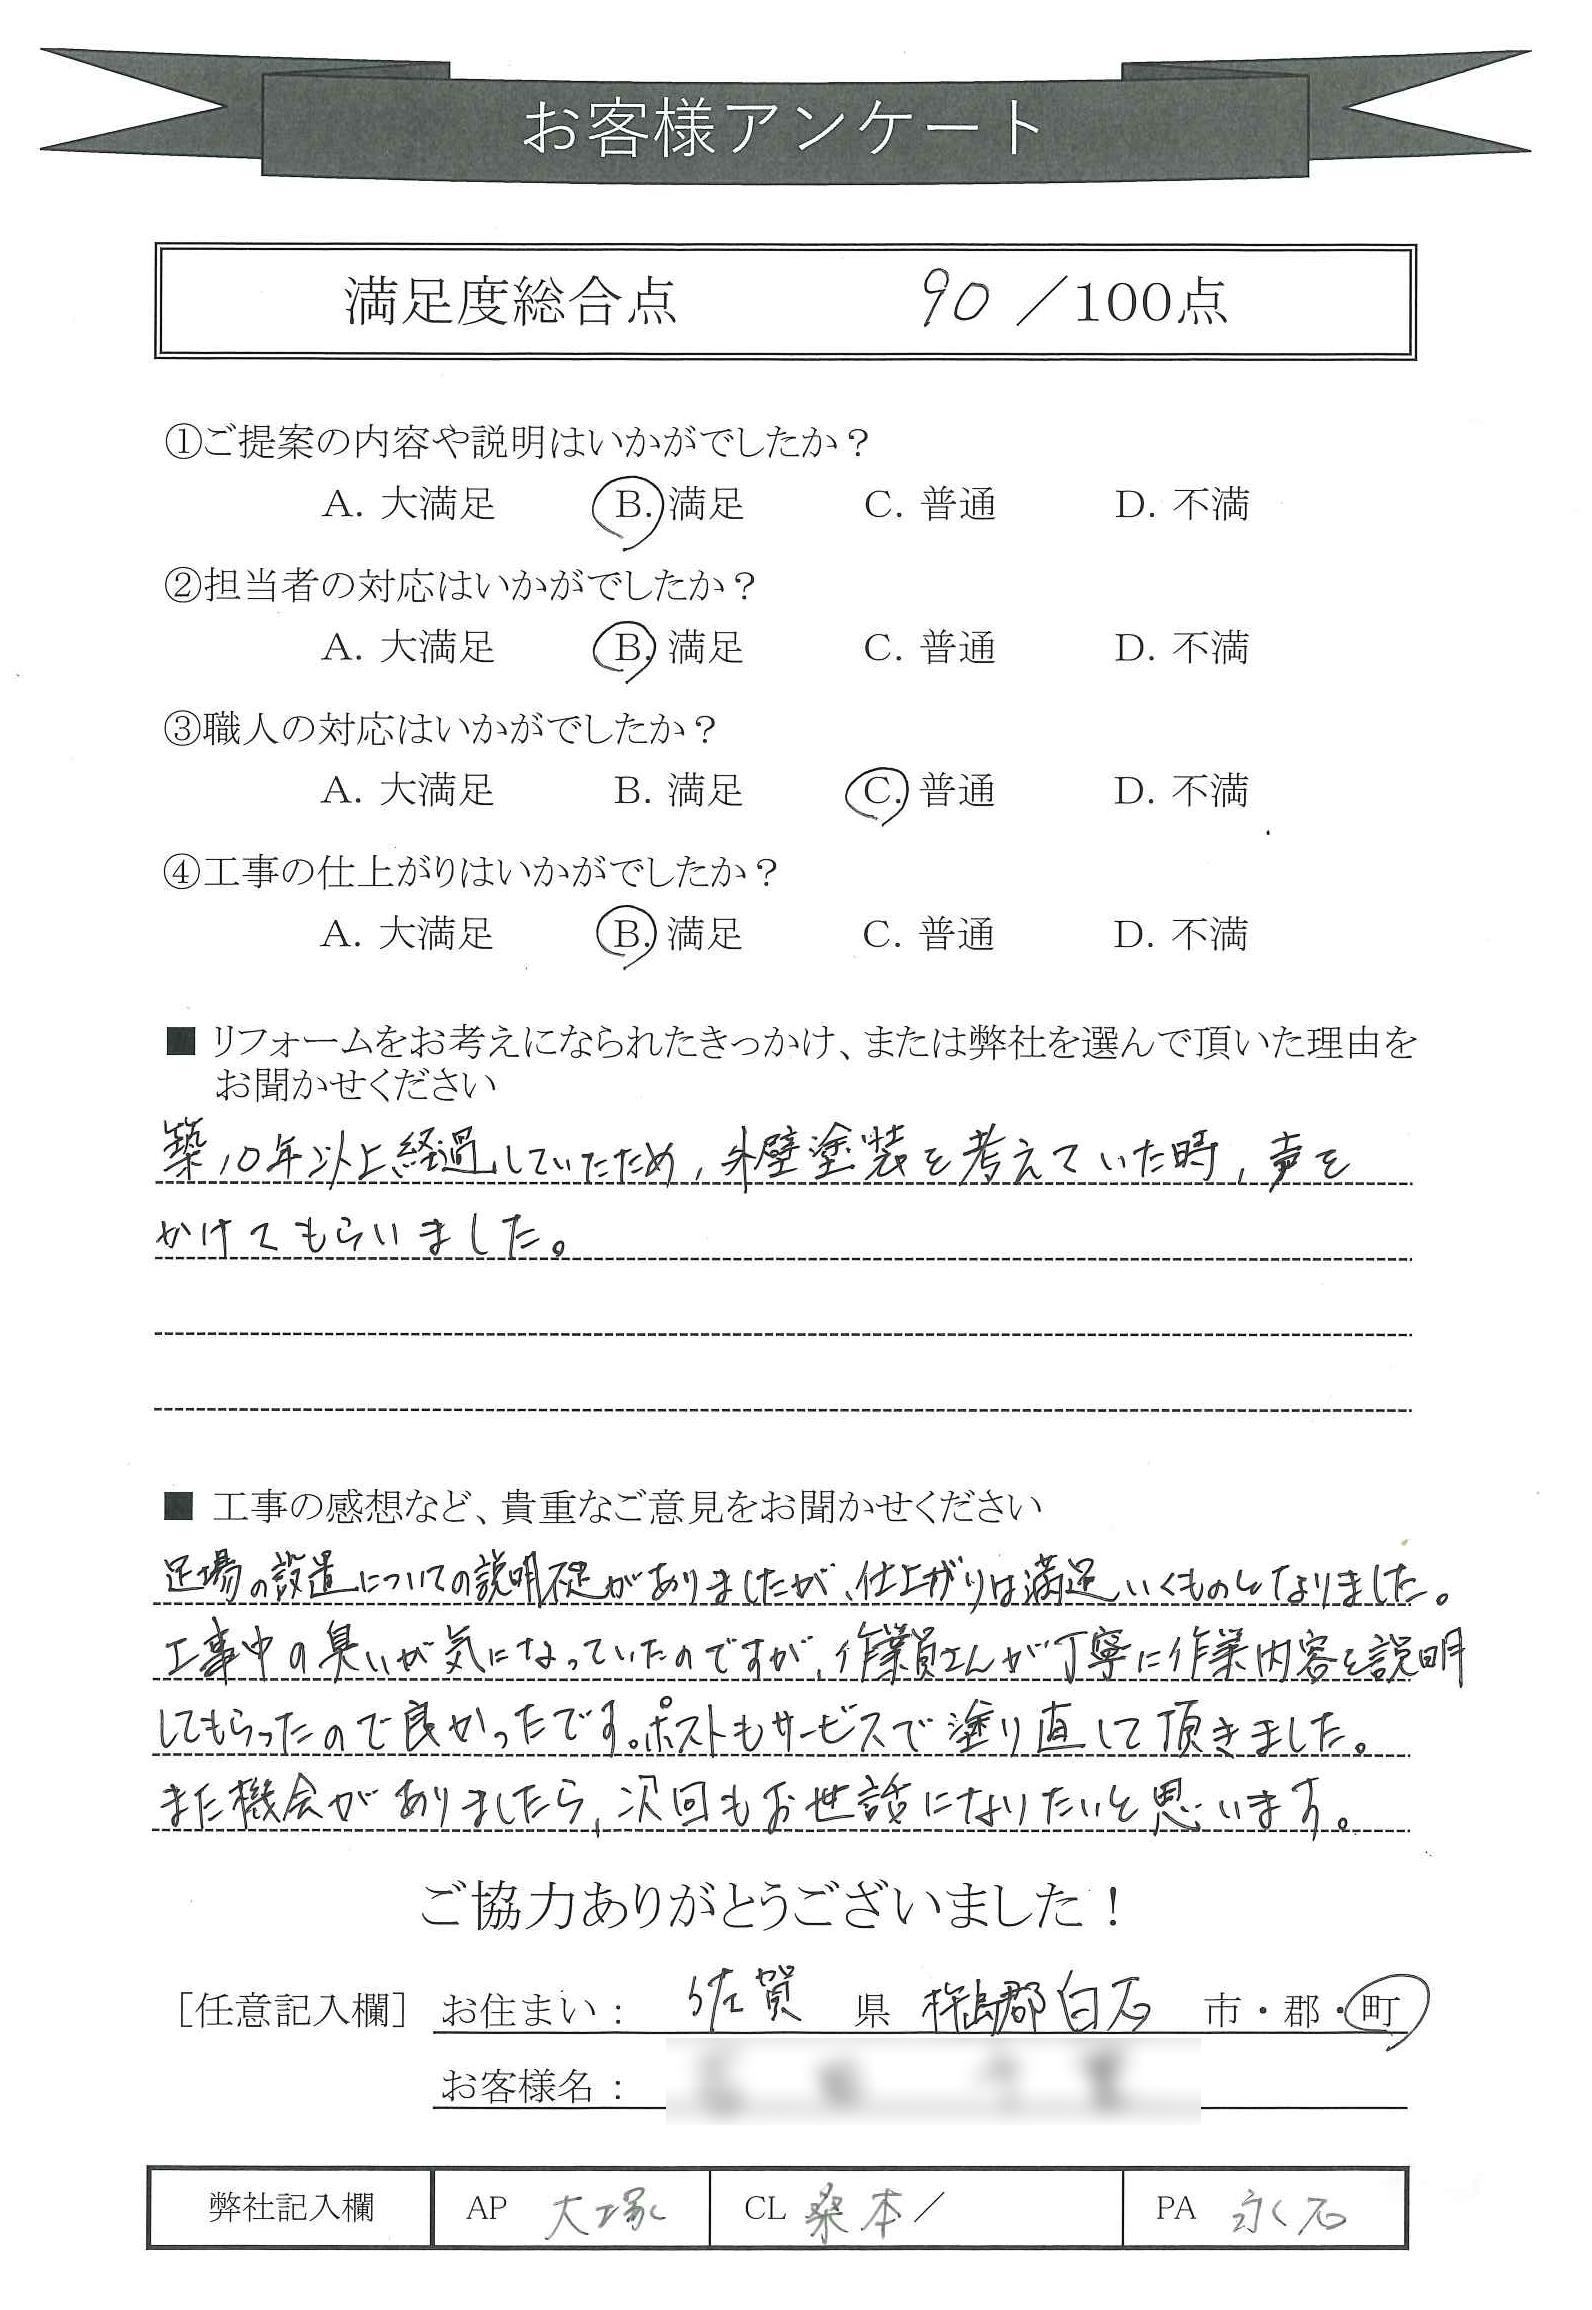 お客様アンケート
満足度総合点 90／100点
①ご提案の内容や説明はいかがでしたか？
A. 大満足 B. 満足 C. 普通 D. 不満
②担当者の対応はいかがでしたか？
A. 大満足 B. 満足 C. 普通 D. 不満
③職人の対応はいかがでしたか？
A. 大満足 B. 満足 C. 普通 D. 不満
④工事の仕上がりはいかがでしたか？
A. 大満足 B. 満足 C. 普通 D. 不満
■ リフォームをお考えになられたきっかけ、または弊社を選んで頂いた理由を
お聞かせください
築10年以上経過していたため、外壁塗装を考えていた時、声を
かけてもらいました。
■ 工事の感想など、貴重なご意見をお聞かせください
足場の設置についての説明不足がありましたが、仕上がりは満足いくものとなりました。
工事中の臭いが気になっていたのですが、作業員さんが丁寧に作業内容を説明
してもらったので良かったです。ポストもサービスで塗り直して頂きました。
また機会がありましたら、次回もお世話になりたいと思います。
ご協力ありがとうございました！
［任意記入欄］ お住まい： 佐賀 県 杵島郡白石 市・郡・町
お客様名：
弊社記入欄 AP 大塚 CL 桑本／ PA 永石